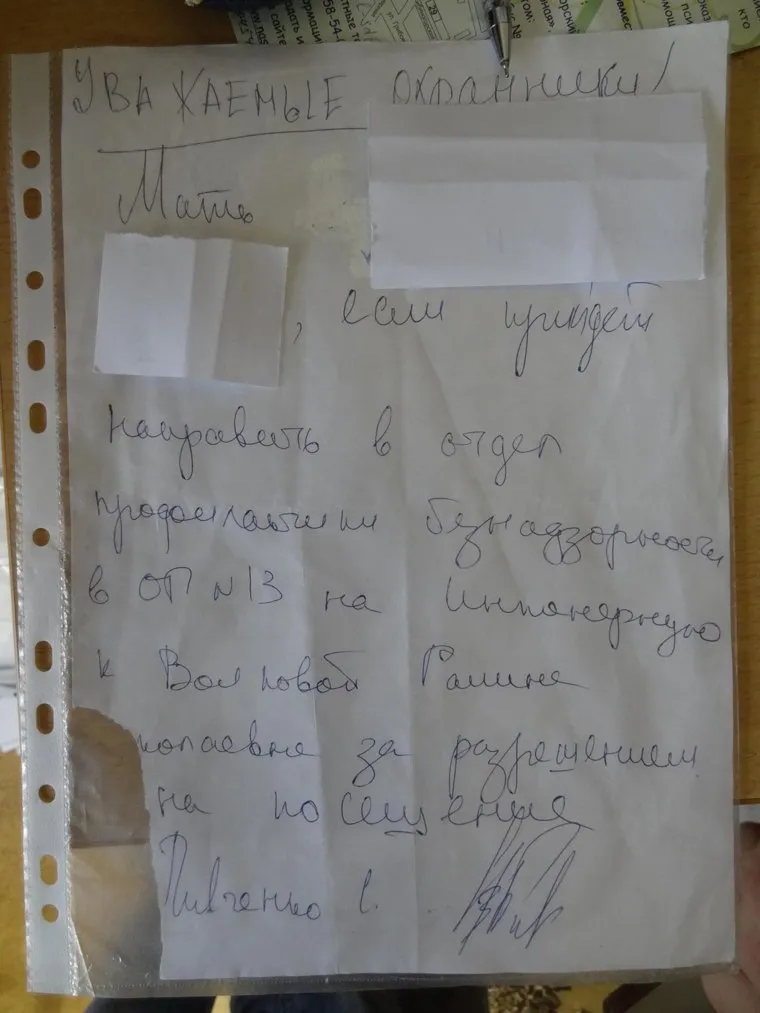 УВАЖАЕМЫЕ охранники!
Мать
, если прийдет
направить в отдел
профилактики безнадзорности
в ОП №13 на Инженерную
к Волковой Галине
колаевне за разрешением
на посещение
Пивченко С.